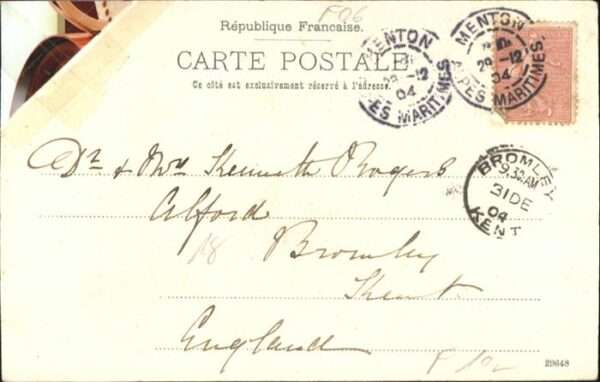 F06
République Française.
CARTE POSTALE
Ce côté est exclusivement réservé à l'adresse.
MENTON
29-12
04
ALPES MARITIMES
MENTON
29-12
04
ALPES MARITIMES.
Dr & Mrs Kenneth Rogers
Alford
18
Bromley
Kent
England
BROMLEY
9.30AM
31DE
04
KENT
29648